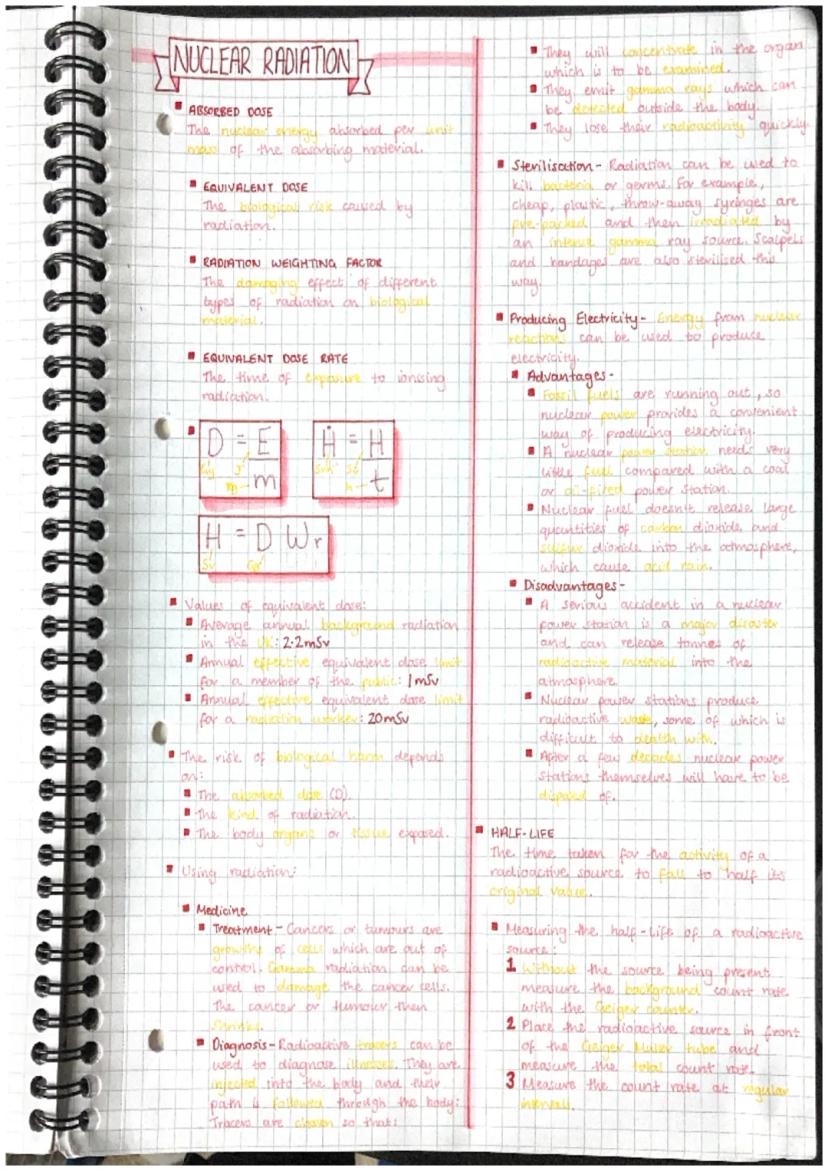 NUCLEAR RADIATION
ABSORBED DOSE
The nuclear energy absorbed per unit
mass of the absorbing material.
EQUIVALENT DOSE
The biological risk caused by
radiation.
RADIATION WEIGHTING FACTOR
The damaging effect of different
types of radiation on biological
material.
EQUIVALENT DOSE RATE
The time of exposure to ionising
radiation.
D = E
m
Ḣ = H
t
H = D Wr
Values of equivalent dose:
Average annual background radiation
in the UK: 2.2mSv
Annual effective equivalent dose limit
for a member of the public: 1mSv
Annual effective equivalent dose limit
for a radiation worker: 20mSv
The risk of biological harm depends
on:
The absorbed dose (D).
The kind of radiation.
The body organs or tissue exposed.
Using radiation:
Medicine
Treatment - Cancers or tumours are
growths of cells which are out of
control. Gamma radiation can be
used to damage the cancer cells.
The cancer or tumour then
shrinks.
Diagnosis - Radioactive tracers can be
used to diagnose illnesses. They are
injected into the body and their
path is followed through the body.
Tracers are chosen so that:
They will concentrate in the organ
which is to be examined.
They emit gamma rays which can
be detected outside the body.
They lose their radioactivity quickly.
Sterilisation - Radiation can be used to
kill bacteria or germs. For example,
cheap, plastic, throw-away syringes are
pre-packed and then irradiated by
an intense gamma ray source. Scalpels
and bandages are also sterilised this
way.
Producing Electricity - Energy from nuclear
reactions can be used to produce
electricity.
Advantages -
Fossil fuels are running out, so
nuclear power provides a convenient
way of producing electricity.
A nuclear power station needs very
little fuel compared with a coal
or oil-fired power station.
Nuclear fuel doesn't release large
quantities of carbon dioxide and
sulfur dioxide into the atmosphere,
which cause acid rain.
Disadvantages -
A serious accident in a nuclear
power station is a major disaster
and can release tonnes of
radioactive material into the
atmosphere.
Nuclear power stations produce
radioactive waste, some of which is
difficult to dealth with.
After a few decades nuclear power
stations themselves will have to be
disposed of.
HALF-LIFE
The time taken for the activity of a
radioactive source to fall to half its
original value.
Measuring the half-life of a radioactive
source:
1 Without the source being present
measure the background count rate
with the Geiger counter.
2 Place the radioactive source in front
of the Geiger Muller tube and
measure the total count rate.
3 Measure the count rate at regular
intervals.